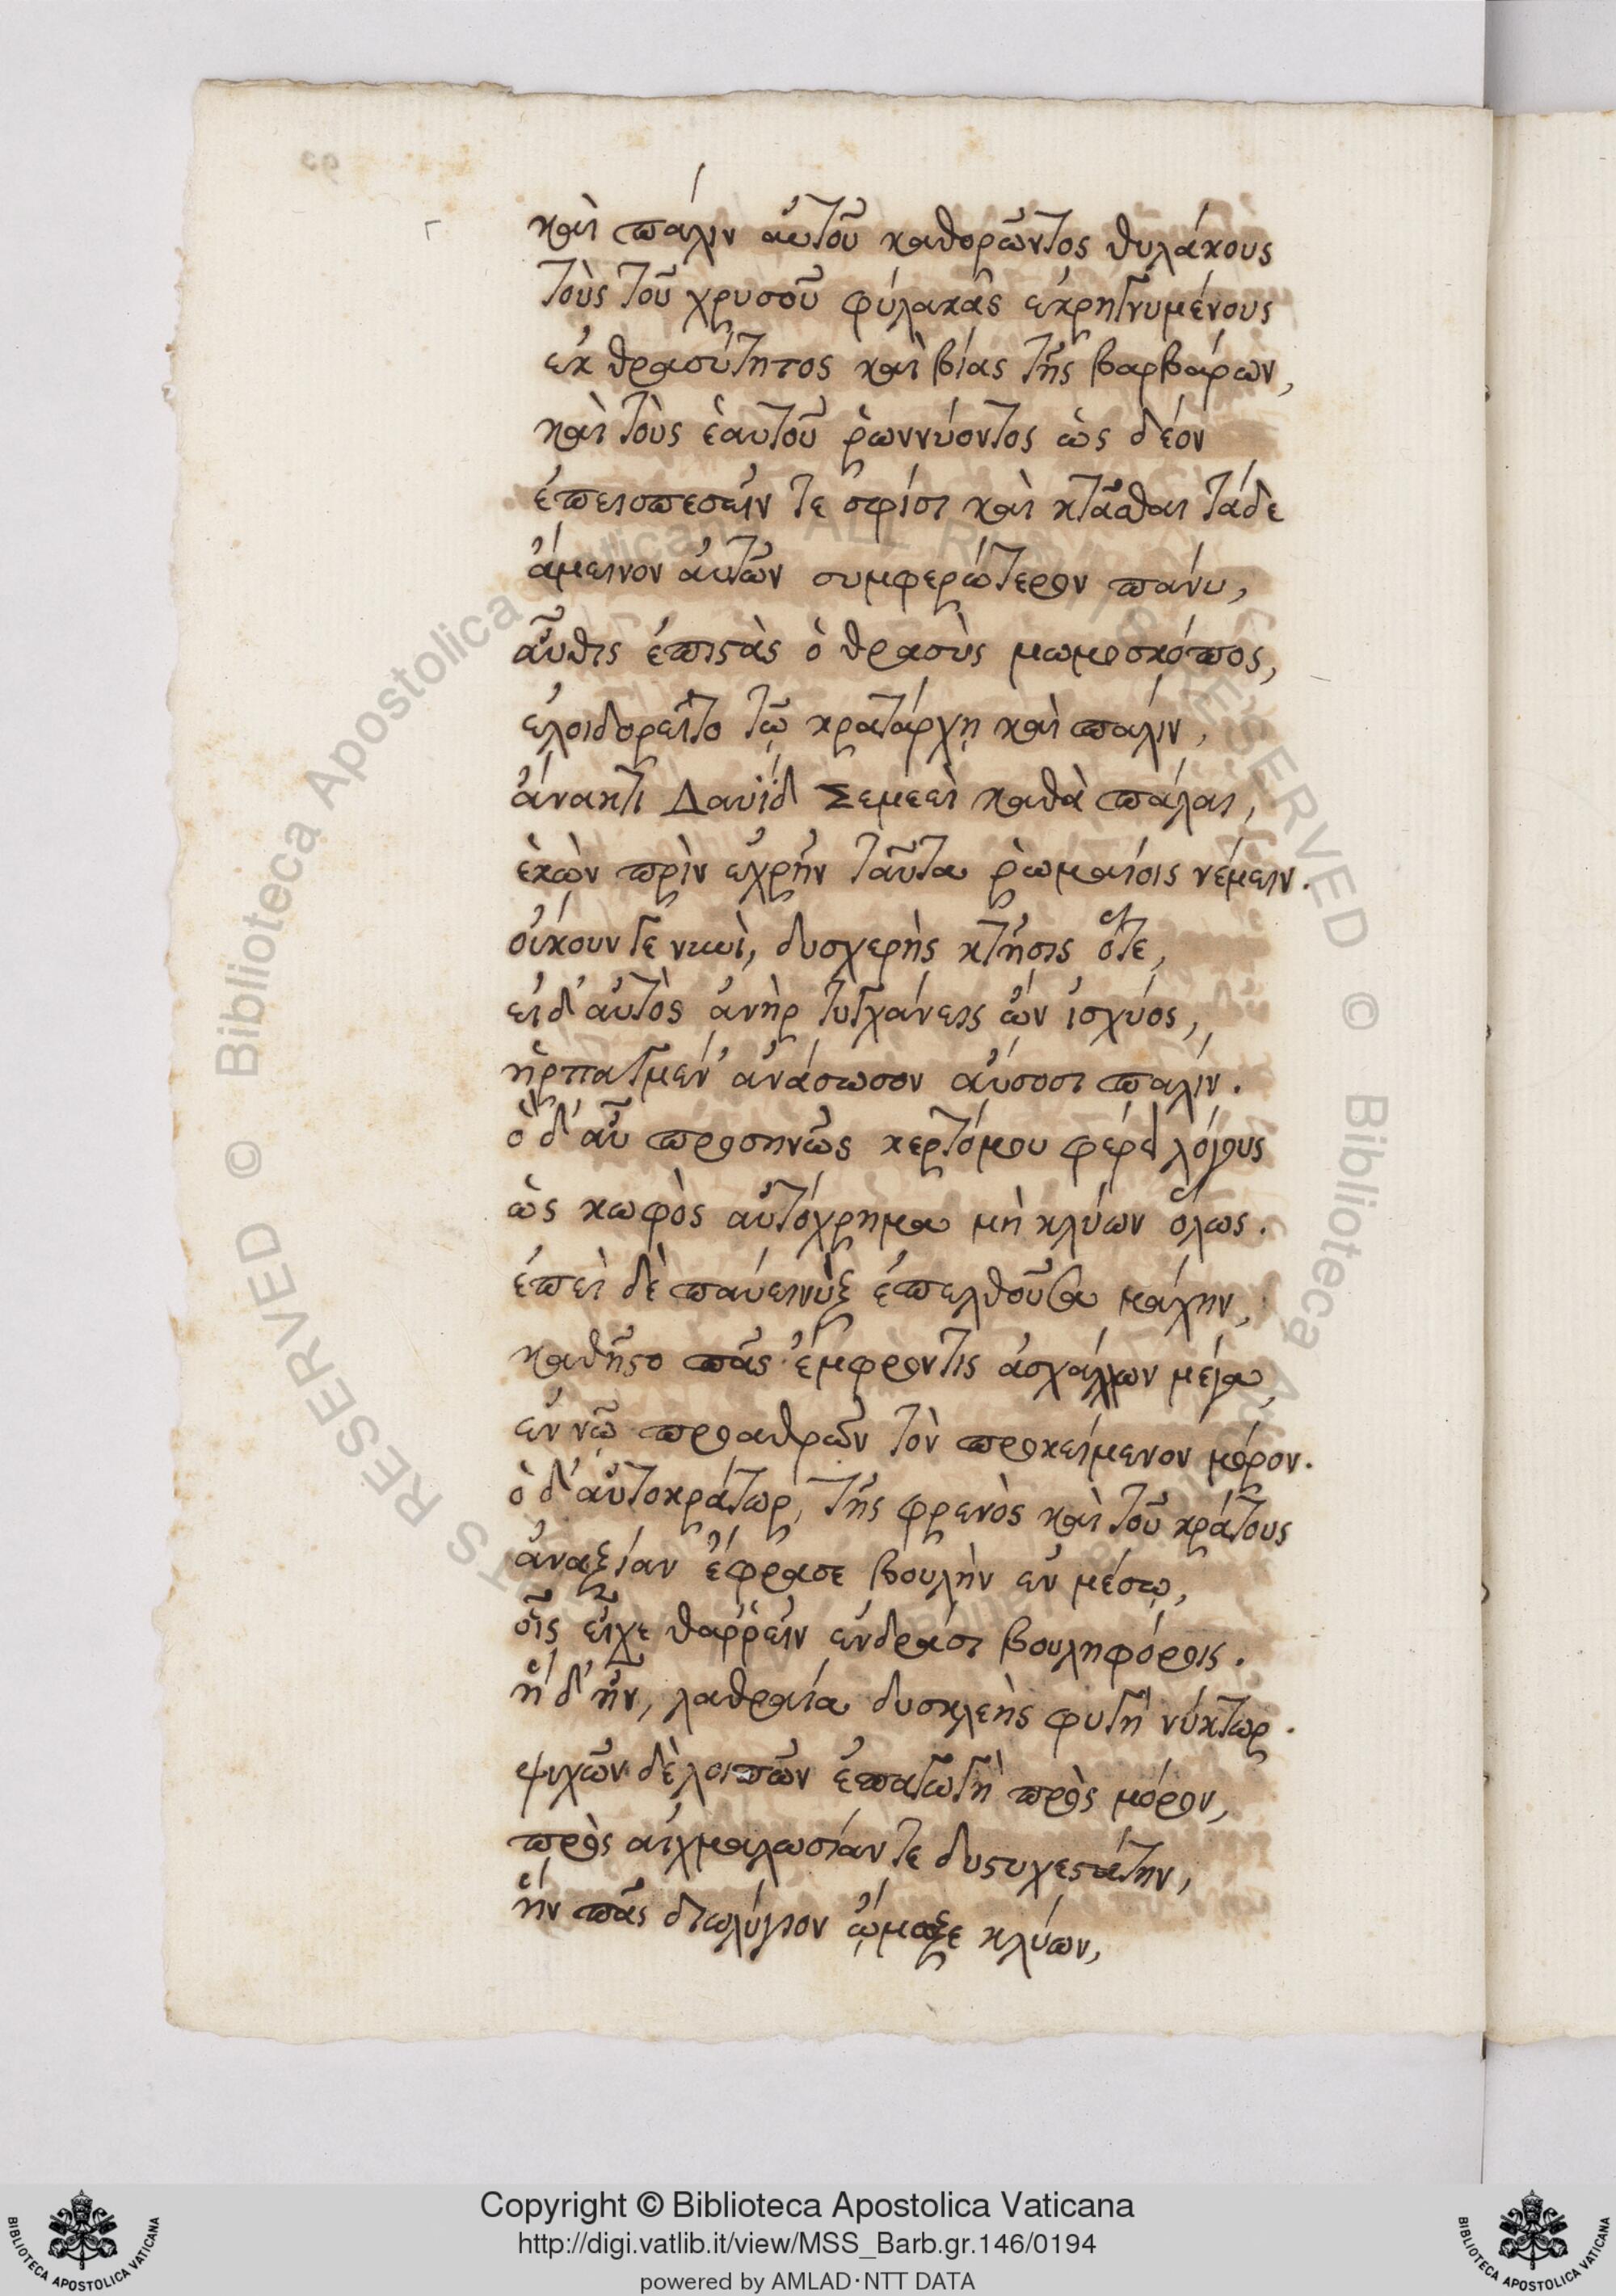 καὶ πάλιν αὐτοῦ καθορῶντος θυλάκους
τοὺς τοῦ χρυσοῦ φύλακας ἐκρηγνυμένους
ἐκ θρασύτητος καὶ βίας τῆς βαρβάρων,
καὶ τοὺς ἑαυτοῦ ῥωννύοντος ὡς δέον
ἐπεισπεσεῖν τε σφίσι καὶ κτᾶσθαι τάδε
ἄμεινον αὐτῶν συμφερώτερον πάνυ,
αὖθις ἐπιστὰς ὁ θρασὺς μωμοσκόπος,
ἐλοιδορεῖτο τῷ κρατάρχῃ καὶ πάλιν,
ἄνακτι Δαυῒδ Σεμεεὶ καθὰ πάλαι,
ἑκὼν πρὶν ἐχρῆν ταῦτα ῥωμαίοις νέμειν.
οὔκουν γε νυνὶ, δυσχερὴς κτῆσις ὅτε,
εἰ δ' αὐτὸς ἀνὴρ τυγχάνεις ὢν ἰσχύος,
ἡρπαγμέν' ἀνάσωσον αὔσοσι πάλιν.
ὁ δ' αὖ προσηνῶς κερτόμου φέρει λόγους
ὡς κωφὸς αὐτόχρημα μὴ κλύων ὅλως.
ἐπεὶ δὲ παύει νὺξ ἐπελθοῦσα μάχην,
καθῆστο πᾶς ἔμφροντις ἀσχάλλων μέγα,
ἐν νῷ προαθρῶν τὸν προκείμενον μόρον.
ὁ δ' αὐτοκράτωρ, τῆς φρενὸς καὶ τοῦ κράτους
ἀναξίαν ἔφρασε βουλὴν ἐν μέσῳ,
οἷς εἶχε θαῤῥεῖν ἐνδράσι βουληφόροις.
ἡ δ' ἦν, λαθραία δυσκλεὴς φυγὴ νύκτωρ.
ψυχῶν δὲ λοιπῶν ἐπαγωγὴ πρὸς μόρον,
πρὸς αἰχμαλωσίαν τε δυστυχεστάτην,
ἣν πᾶς διωλύγιον ᾤμωξε κλύων,
Copyright © Biblioteca Apostolica Vaticana
http://digi.vatlib.it/view/MSS_Barb.gr.146/0194
powered by AMLAD·NTT DATA